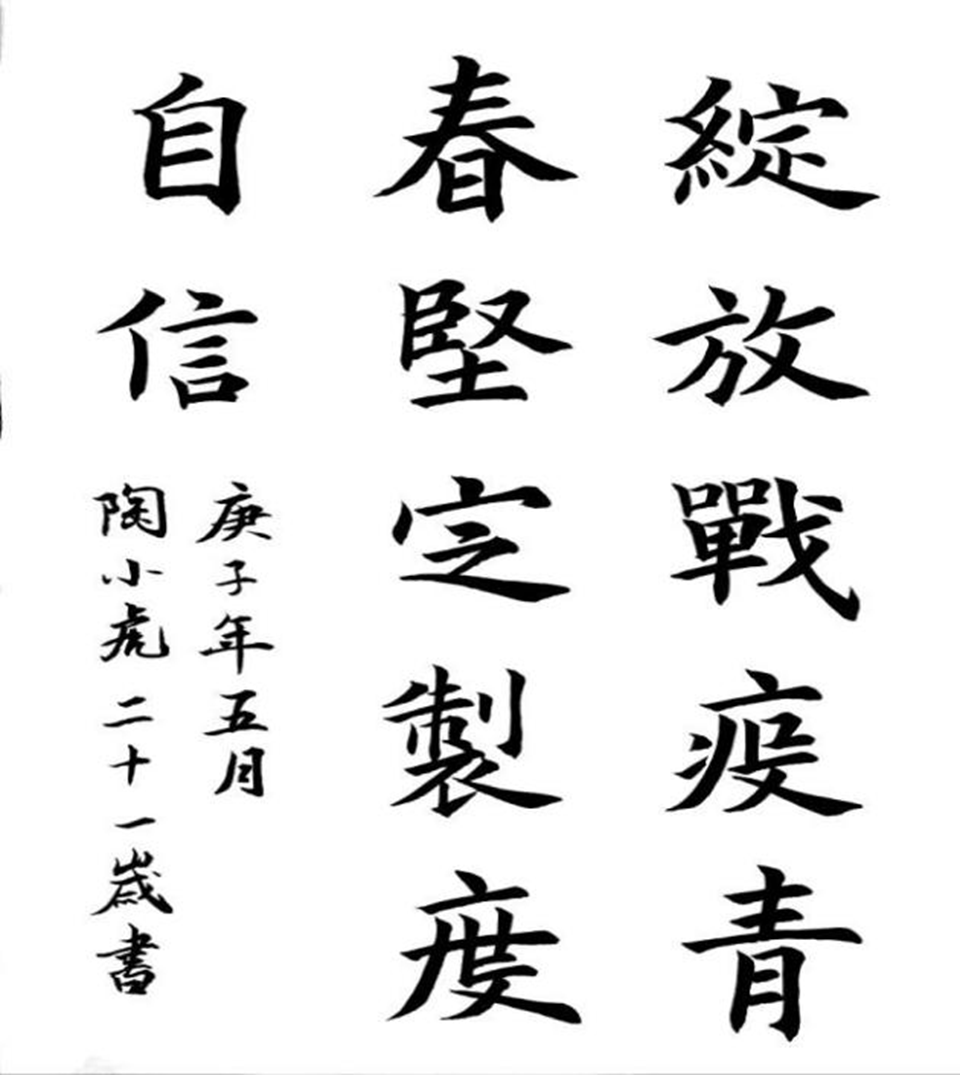 綻放戰疫青
春堅定製度
自信
庚子年五月
陶小虎二十一歲書